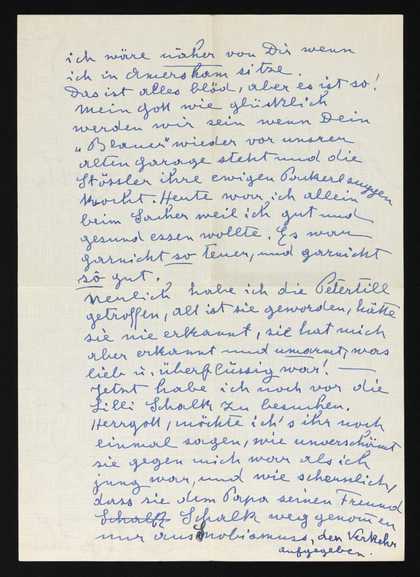 ich wäre näher von Dir wenn
ich in Amersham sitze.
Das ist alles blöd, aber es ist so!
Mein Gott wie glücklich
werden wir sein wenn Dein
„Blauer" wieder vor unsrer
alten Garage steht und die
Stössler ihre ewigen Packerlsuppen
kocht. Heute war, ich allein
beim Sacher weil ich gut und
gesund essen wollte. Es war
garnicht so teuer, und garnicht
so gut.
Neulich habe ich die Petertill
getroffen, alt ist sie geworden, hätte
sie nie erkannt, sie hat mich
aber erkannt und umarmt, was
lieb u. überflüssig war! —
Jetzt habe ich noch vor die
Lilli Schalk zu besuchen.
Herrgott, möchte ich's ihr noch
einmal sagen, wie unverschämt
sie gegen mich war als ich
jung war, und wie scheusslich,
dass sie dem Papa seinen Freund
Schalk weg genommen
nur aus Snobismuss, den Verkehr
aufgegeben.